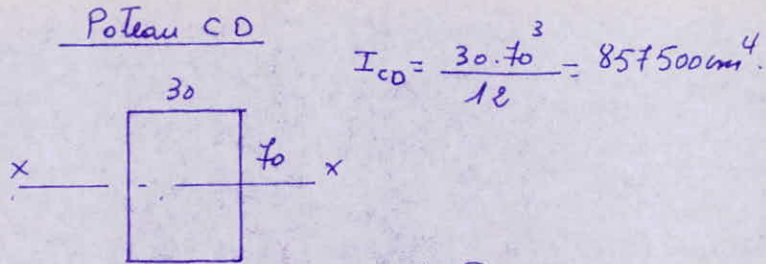 Poteau CD
I_CD = 30.70³ / 12 = 857500 cm⁴.
30
x 70 x